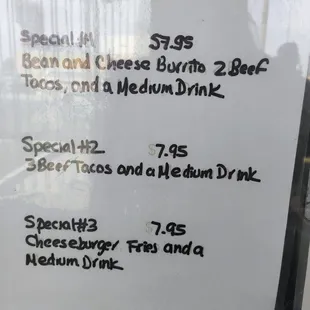 Special #1 $7.95
Bean and Cheese Burrito 2 Beef
Tacos, and a Medium Drink
Special #2 $7.95
3 Beef Tacos and a Medium Drink
Special #3 $7.95
Cheeseburger Fries and a
Medium Drink